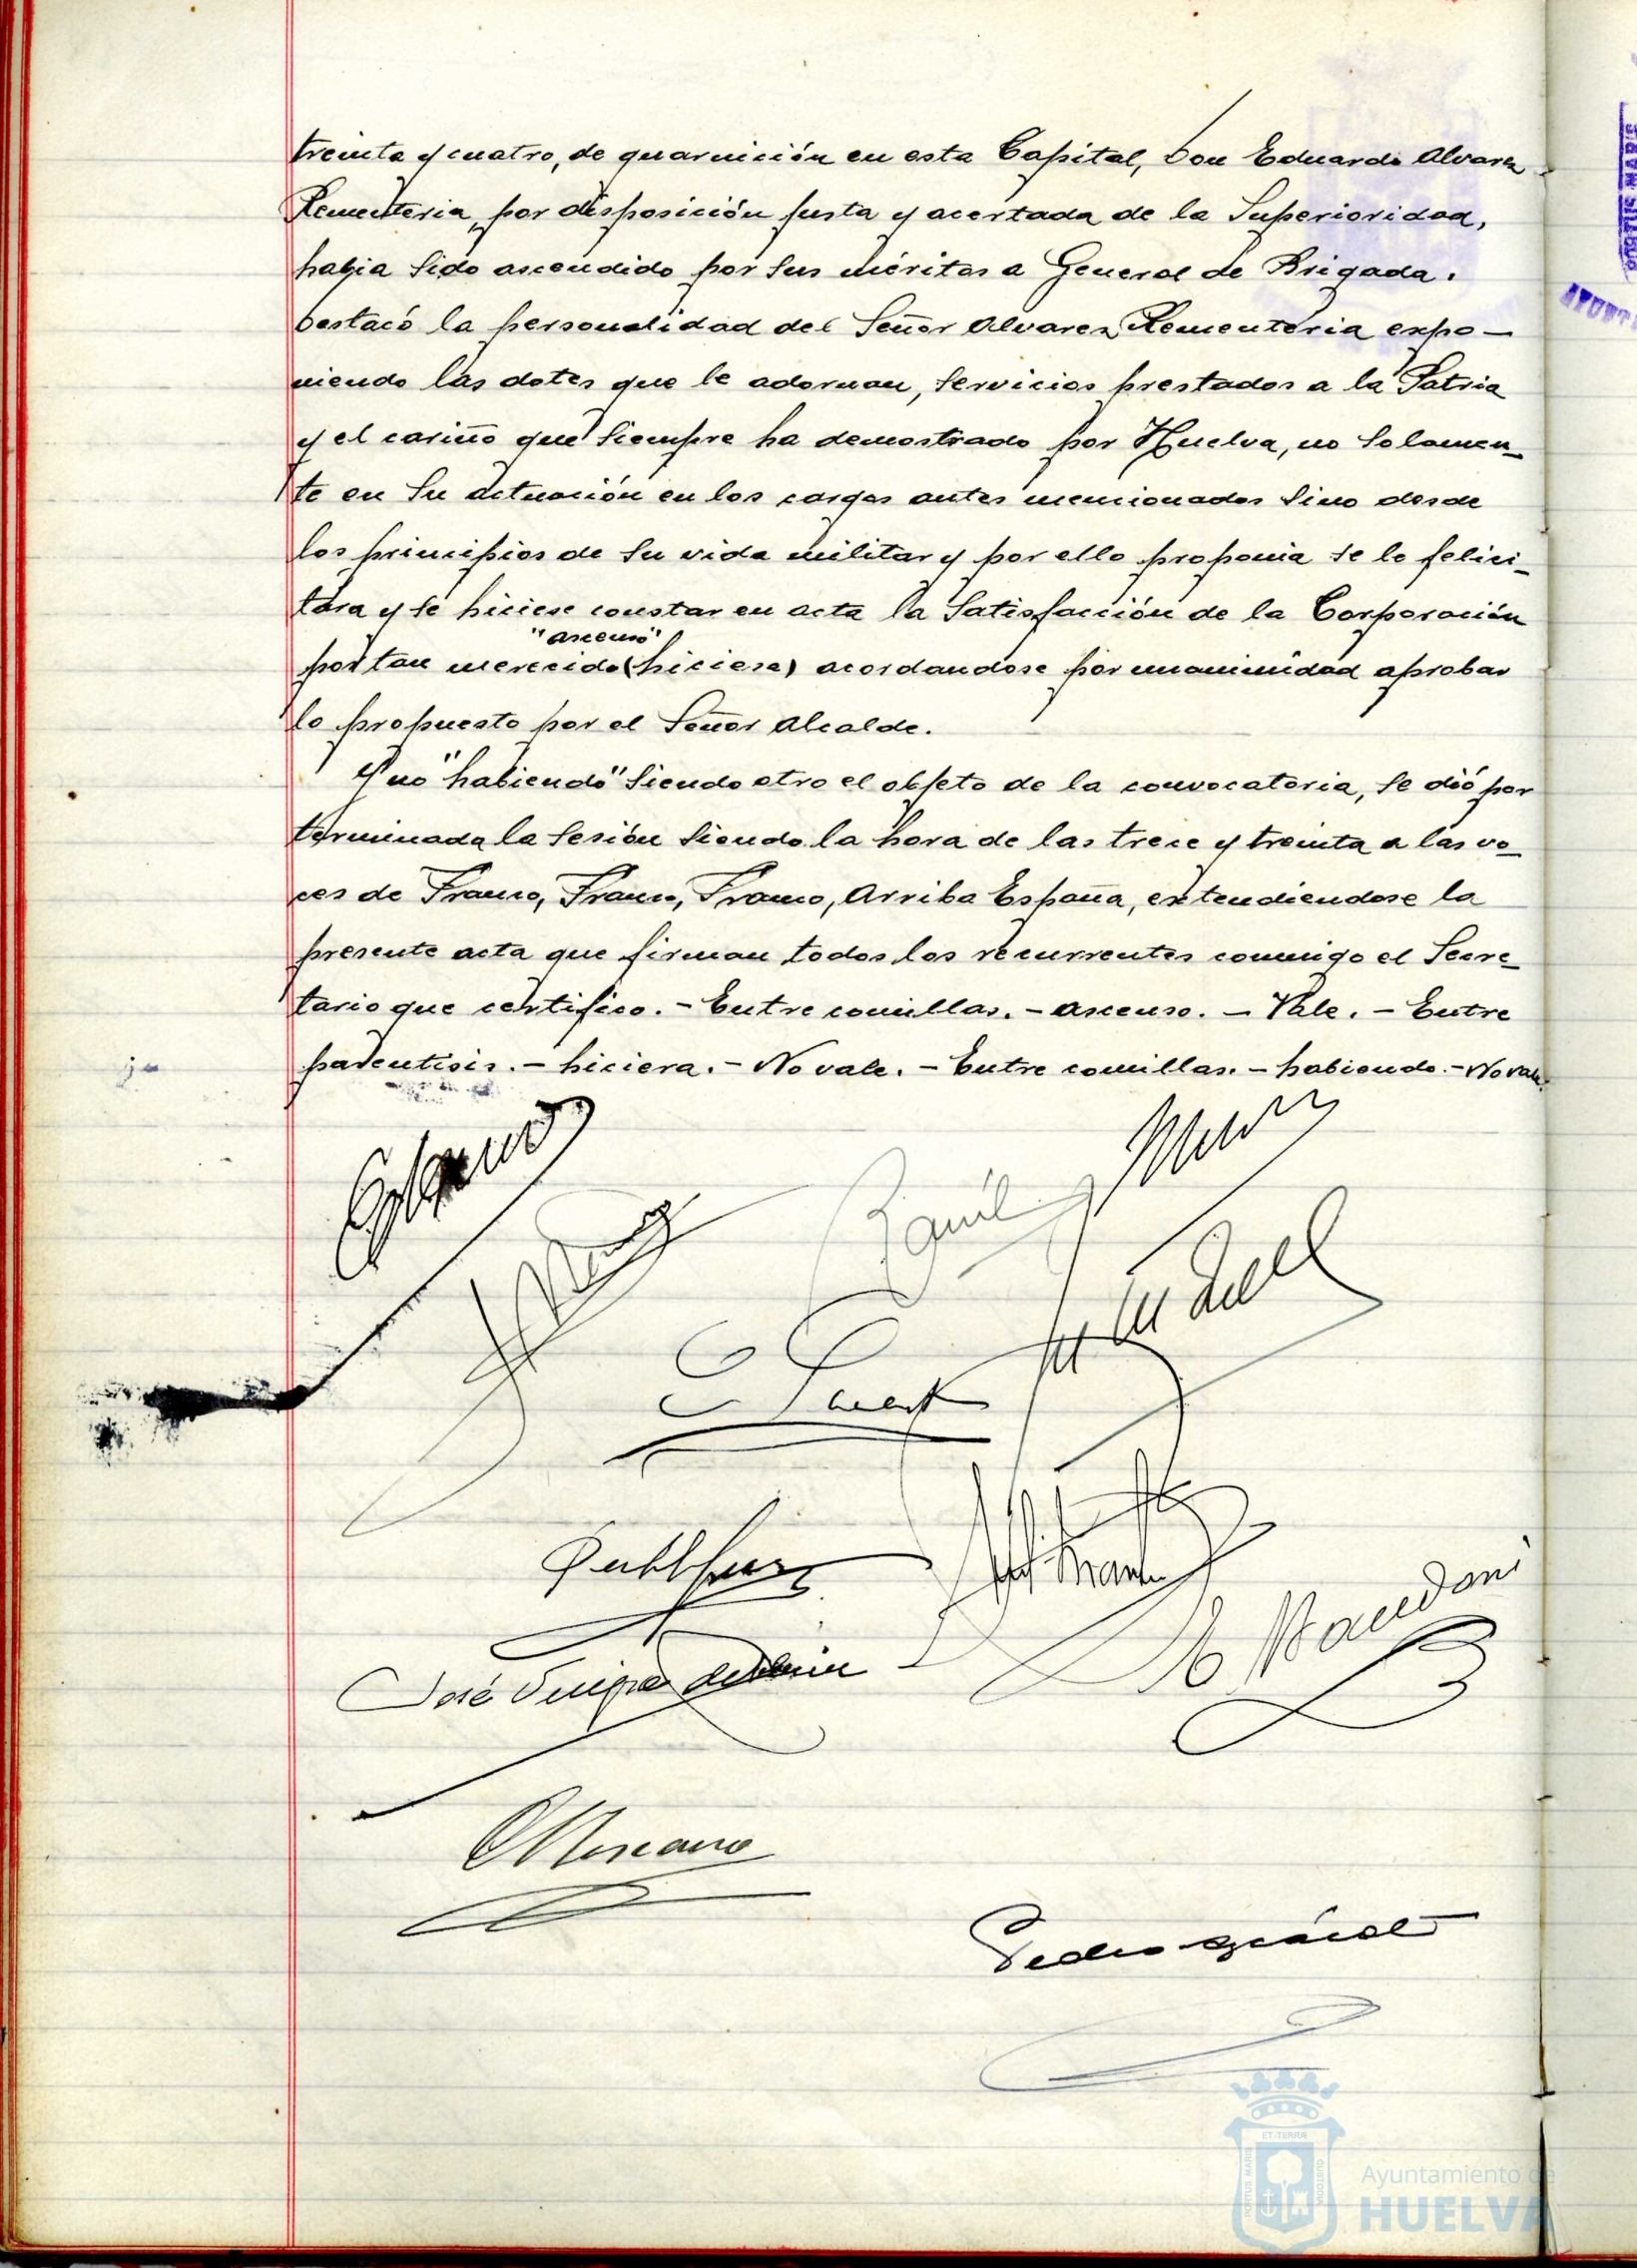 treinta y cuatro, de guarnición en esta Capital, Don Eduardo Alvarez
Rementeria, por disposición justa y acertada de la Superioridad,
habia sido ascendido por sus méritos a General de Brigada.
Destacó la personalidad del Señor Alvarez Rementeria expo-
niendo las dotes que le adornan, servicios prestados a la Patria
y el cariño que siempre ha demostrado por Huelva, no solamen-
te en su actuación en los cargos antes mencionados sino desde
los principios de su vida militar y por ello proponia se le felici-
tara y se hiciese constar en acta la satisfacción de la Corporación
"ascenso"
por tan merecido (hiciese) acordandose por unanimidad aprobar
lo propuesto por el Señor Alcalde.
Y no "habiendo" siendo otro el objeto de la convocatoria, se dió por
terminada la sesión siendo la hora de las trece y treinta a las vo-
ces de Franco, Franco, Franco, Arriba España, extendiendose la
presente acta que firman todos los recurrentes conmigo el Secre-
tario que certifico. - Entre comillas. - ascenso. - Vale. - Entre
parentisis. - hiciera. - No vale. - Entre comillas. - habiendo. - No vale.
José
Pedro
PORTUS MARIS
ET TERRE
CUSTODIA
Ayuntamiento de
HUELVA
PORTUS MARIS
AYUNT